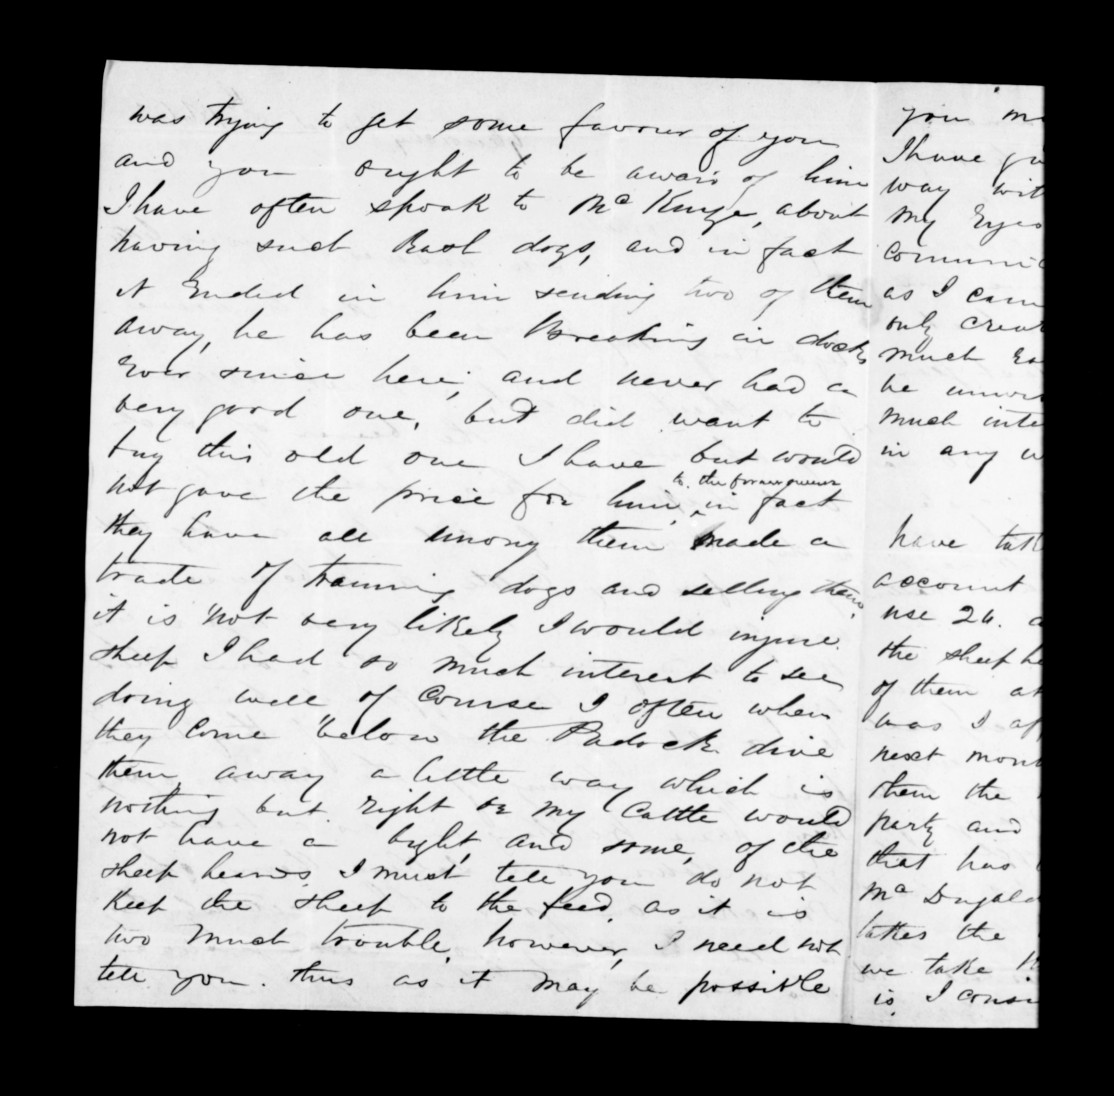 was trying to get some favour of you
and you ought to be awair of him
I have often spoak to Mc Kinze, about
having such Bad dogs, and in fact
it Ended in him sending two of them
away, he has been Breaking in docks
Ever since here, and never had a
very good one, but did want to
buy this old one I have but would
not gave the price for him,
to the former owner
in fact
they have all among them made a
trade of training dogs and selling them,
it is not very likely I would injure
sheep I had so much interest to see
doing well of Course I often when
they Come below the Padock drive
them away a little way which is
nothing but right or my Cattle would
not have a bight, and some, of the
sheep heards, I must tell you do not
keep the sheep to the feed, as it is
two much trouble, however, I need not
tell you. thus as it may be possible
you
I have
way
My Eyes
as I
only
much
be
much
in any
have
account
use 26.
the sheep
of them
was I
next
them the
party and
that has
Mc Dugald
takes the
we take
is, I